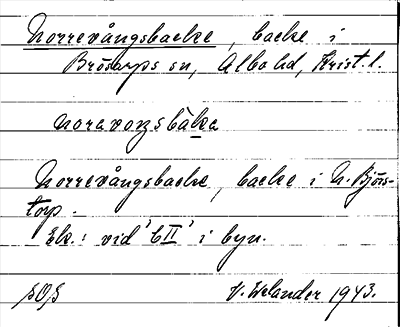 Norrevångsbacke, backe i
Brösarps sn, Albo hd, Krist. l.
noravoŋsbàka
Norrevångsbacke, backe i N. Björs-
torp.
Ek.: vid 'CII' i byn.
SOS
V. Welander 1943.